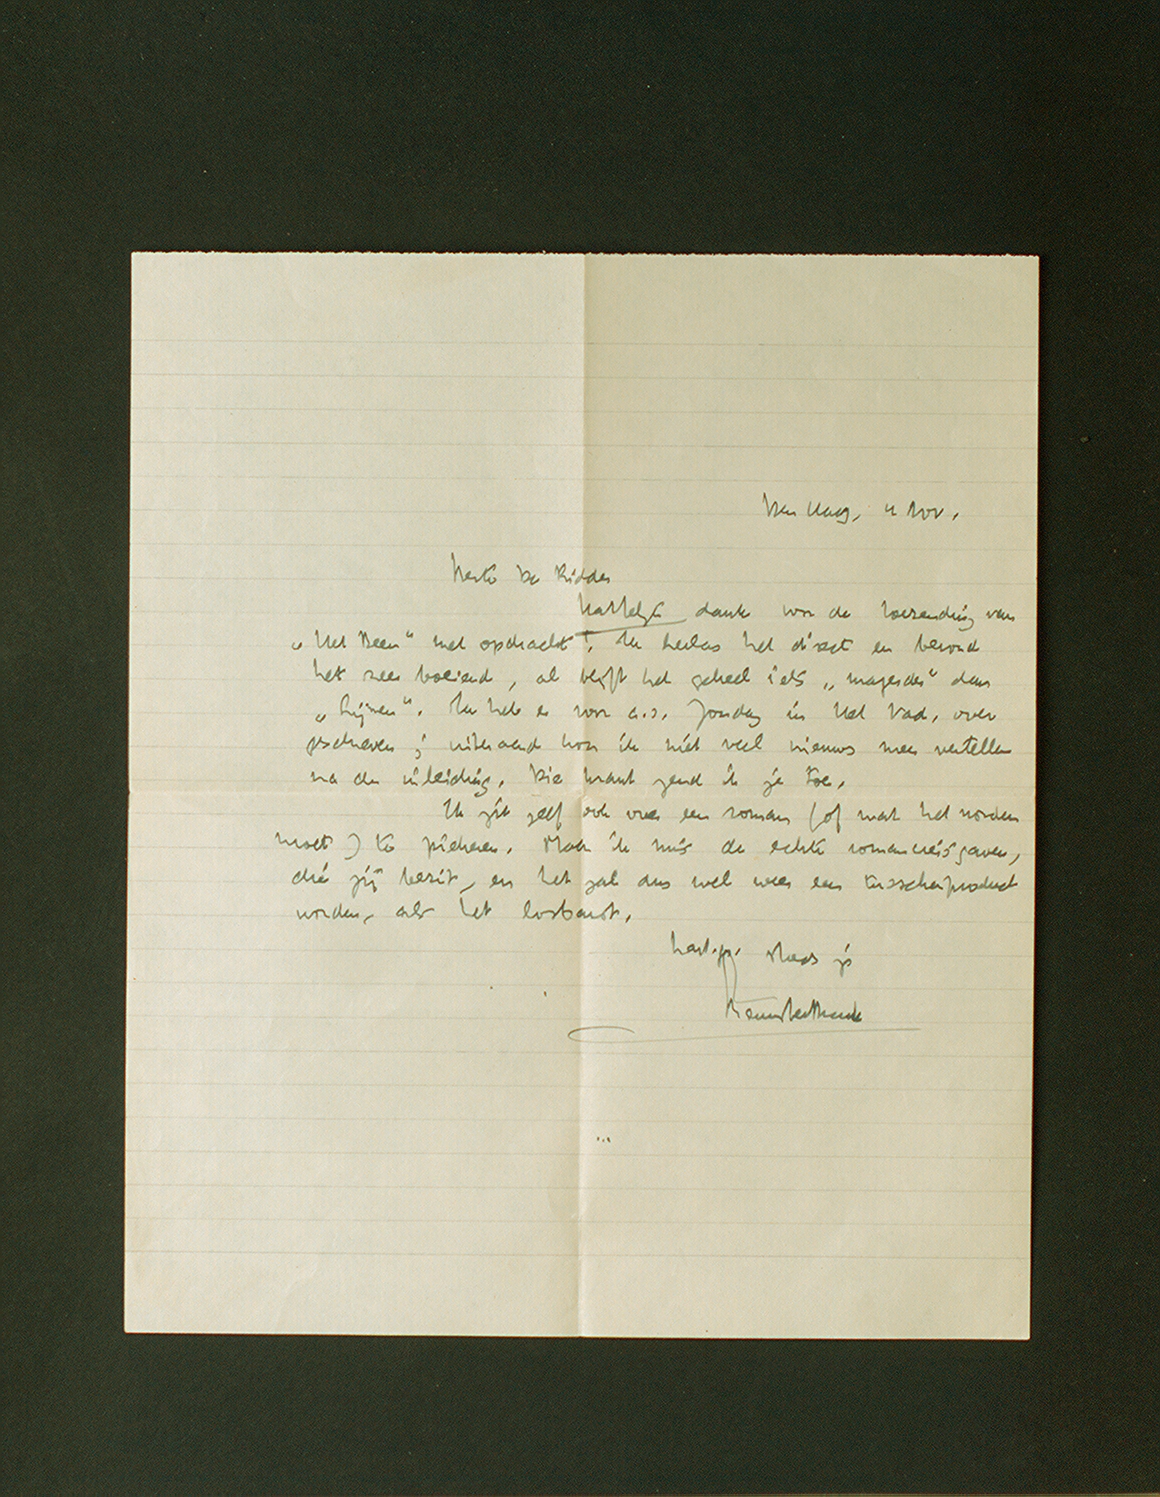 Den Haag, 4 Nov.
Beste De Ridder
Hartelijk dank voor de toezending van
„Het Been" met opdracht! Ik herlas het direct en bevond
het zeer boeiend, al blijft het geheel iets „magerder" dan
„Lijmen". Ik heb er voor a.s. Zondag in Het Vad. over
geschreven; uiteraard kon ik niet veel nieuws meer vertellen
na de inleiding. Die krant zend ik je toe.
Ik zit zelf ook over een roman (of wat het worden
moet) te piekeren. Maar ik mis de echte romanciersgaven,
die jij bezit, en het zal dus wel weer een tusschenproduct
worden, als het losbarst.
hart. gr. steeds je
Menno ter Braak